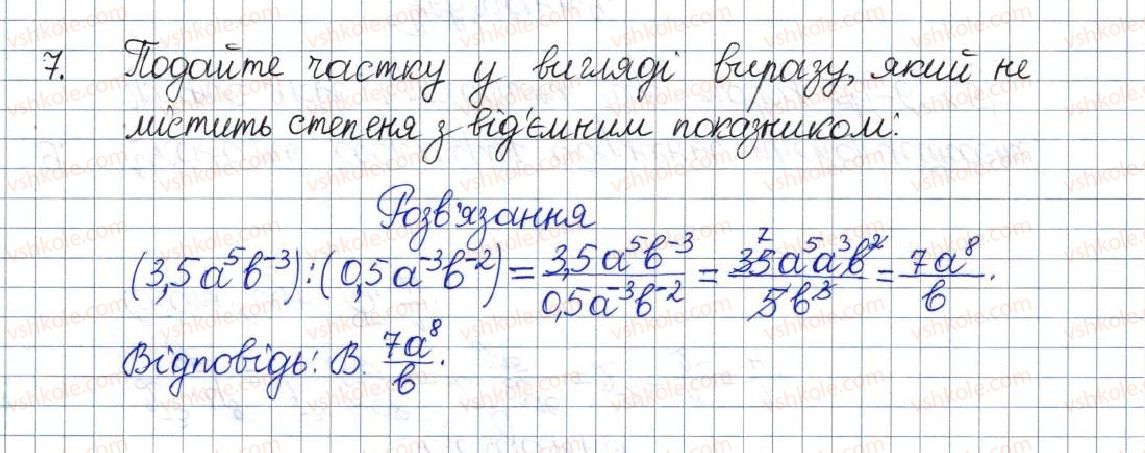 7. Подайте частку у вигляді виразу, який не
містить степеня з від'ємним показником:
Розв'язання
(3,5a⁵b⁻³):(0,5a⁻³b⁻²) = 3,5a⁵b⁻³/0,5a⁻³b⁻² = 35a⁵a³b²/5b³ = 7a⁸/b.
Відповідь: В. 7a⁸/b.